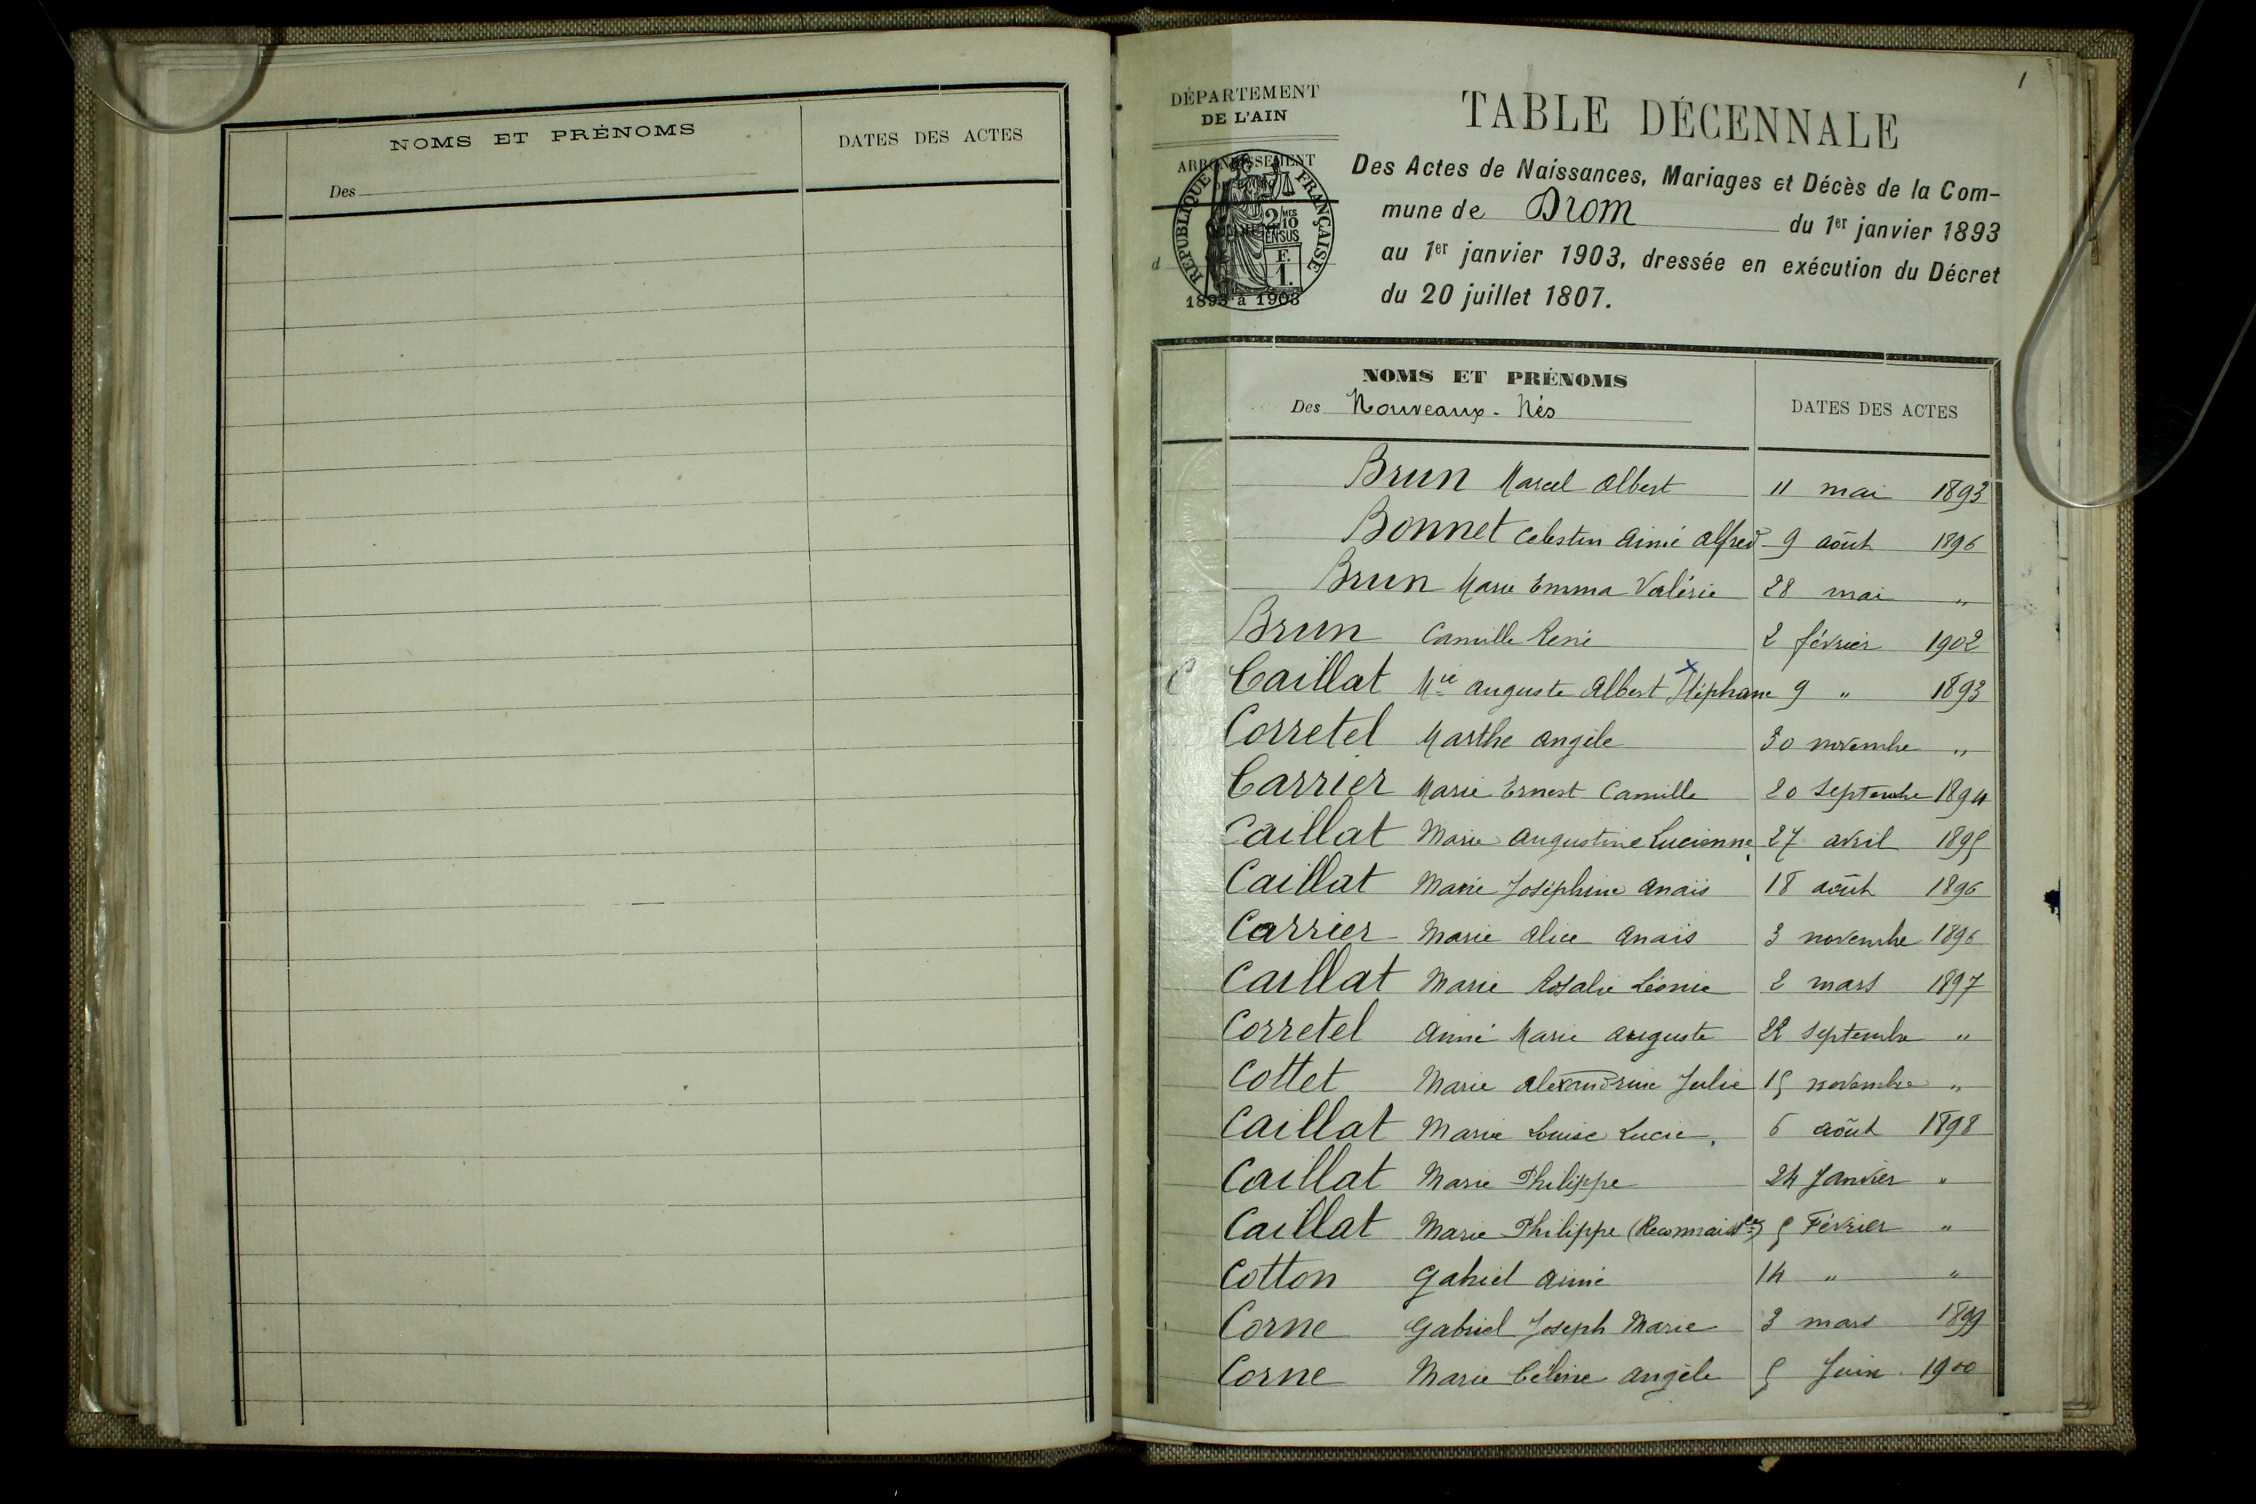 NOMS ET PRÉNOMS
DATES DES ACTES
Des
1
DÉPARTEMENT
DE L'AIN
ARRONDISSEMENT
RÉPUBLIQUE FRANÇAISE
2/10 MES
EN SUS
F.
1.
d
1893 à 1903
TABLE DÉCENNALE
Des Actes de Naissances, Mariages et Décès de la Com-
mune de Drom du 1er janvier 1893
au 1er janvier 1903, dressée en exécution du Décret
du 20 juillet 1807.
NOMS ET PRÉNOMS
Des Nouveaux-Nés
DATES DES ACTES
Brun Marcel Albert 11 mai 1893
Bonnet Celestin Aimé Alfred 9 août 1896
Brun Marie Emma Valérie 28 mai "
Brun Camille René 2 février 1902
C Caillat Mie Auguste Albert Stéphane 9 " 1893
Corretel Marthe Angèle 30 novembre "
Carrier Marie Ernest Camille 20 septembre 1894
Caillat Marie Augustine Lucienne 27 avril 1895
Caillat Marie Joséphine Anaïs 18 août 1896
Carrier Marie Alice Anaïs 3 novembre 1896
Caillat Marie Rosalie Léonie 2 mars 1897
Corretel Aimé Marie Auguste 22 septembre "
Cottet Marie Alexandrine Julie 15 novembre "
Caillat Marie Louise Lucie 6 août 1898
Caillat Marie Philippe 24 Janvier "
Caillat Marie Philippe (Reconnaisce) 5 Février "
Cotton Gabriel Aimé 14 " "
Corne Gabriel Joseph Marie 3 mars 1899
Corne Marie Céline Angèle 5 Juin 1900